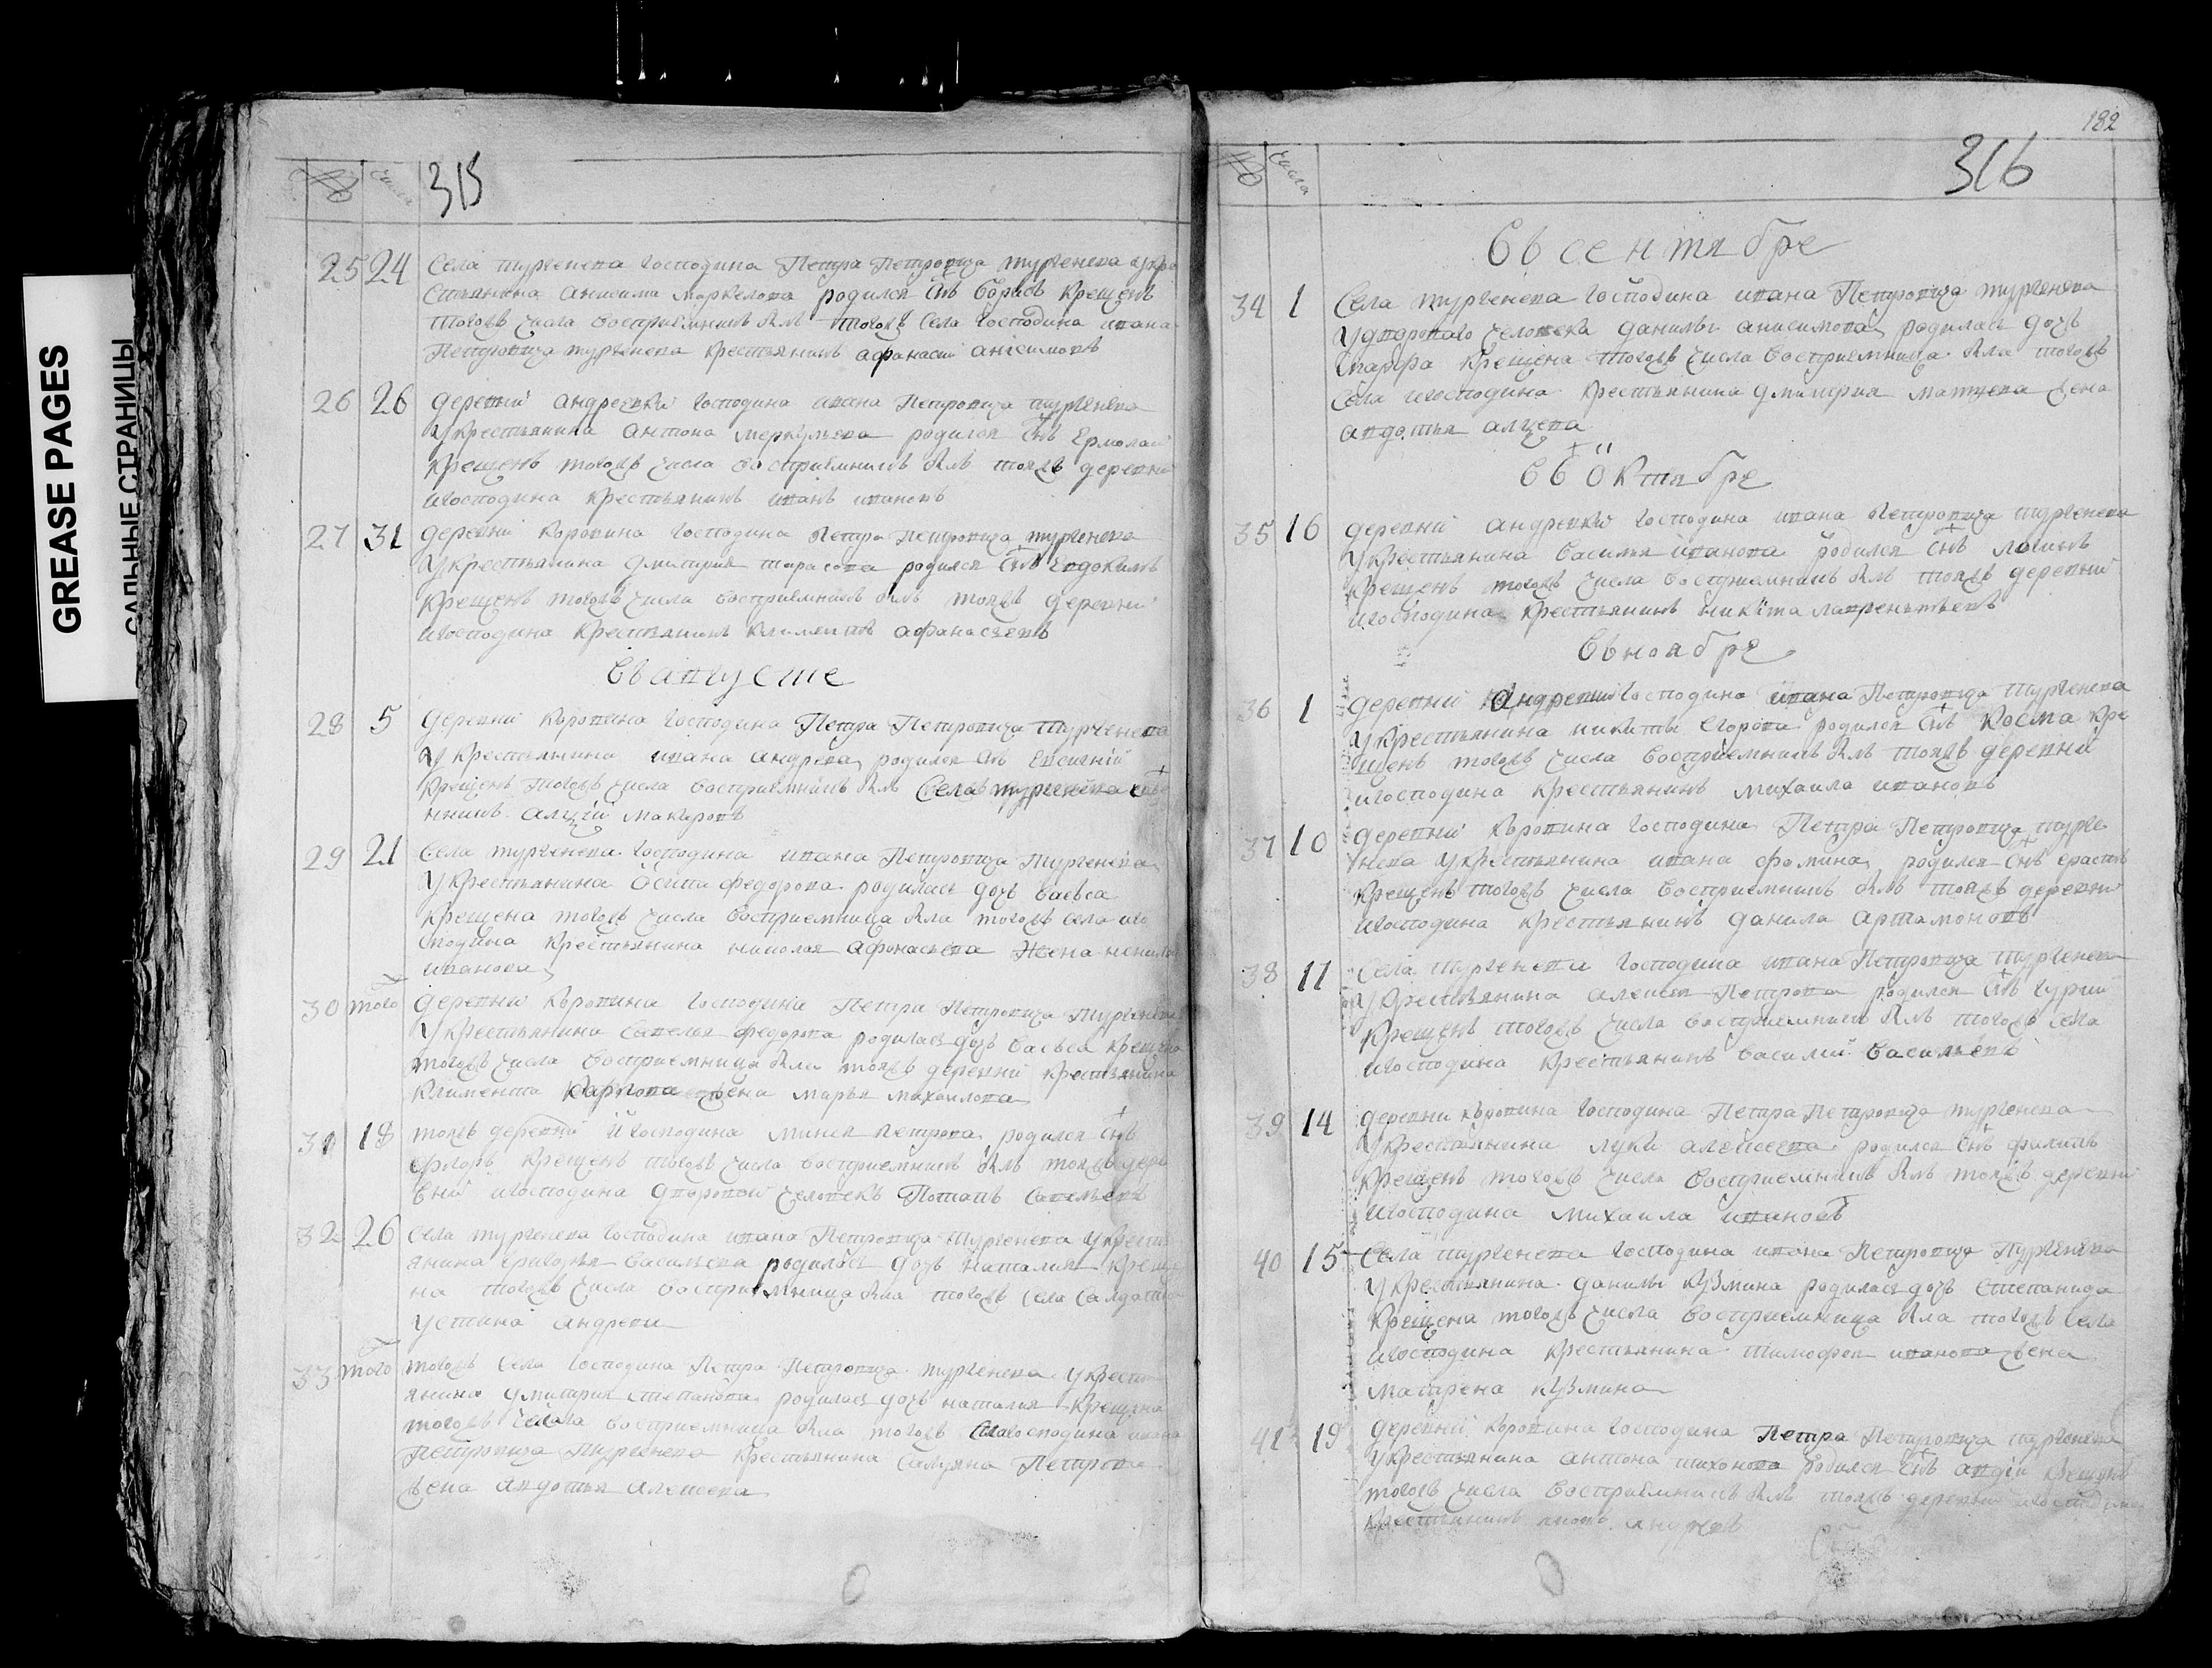 GREASE PAGES
САЛЬНЫЕ СТРАНИЦЫ
№ числа 315
25 24 Села тургенева господина Петра Петровича тургенева укре
стьянина анисима маркелова родился снъ борисъ крещенъ
тогожъ числа восприемникъ былъ тогожъ села господина ивана
Петровича тургенева крестьянинъ афанасий анисимовъ
26 26 деревни андреевки господина ивана Петровича тургенева
укрестьянина антона меркульева родился снъ Ермолай
крещенъ тогожъ числа восприемникъ былъ тояжъ деревни
игосподина крестьянинъ иванъ ивановъ
27 31 деревни коровина господина Петра Петровича тургенева
укрестьянина дмитрия тарасова родился снъ Евдокимъ
крещенъ тогожъ числа восприемникъ былъ тояжъ деревни
игосподина крестьянинъ климентъ афанасьевъ
Въ августе
28 5 деревни коровина господина Петра Петровича тургенева
укрестьянина ивана андреева родился снъ Евсигний
крещенъ тогожъ числа восприемникъ былъ Села тургенева
алексй макаровъ
29 21 Села тургенева господина ивана Петровича Тургенева
укрестьянина осипа федорова родилась дочь васьса
крещена тогожъ числа восприемница была тогожъ села иго
сподина крестьянина николая афонасьева жена ненила
иванова
30 того деревни коровина господина Петра Петровича тургенева
укрестьянина савелья федорова родилась дочь васьса крещена
тогожъ числа восприемница была тояжъ деревни крестьянина
климента карпова жена марья михаилова
31 18 тояжъ деревни и господина минея петрова родился снъ
флоръ крещенъ тогожъ числа восприемникъ былъ тояжъ дере
вни игосподина дворовой человекъ Потапъ савельевъ
32 26 Села тургенева господина ивана Петровича тургенева укресть
янина григорья васильева родилась дочь наталия креще
на тогожъ числа восприемница была тогожъ села салдатка
устина андреева
33 того тогожъ села господина Петра Петровича тургенева укресть
янина дмитрия степанова родилась дочь наталия крещена
тогожъ числа восприемница была тогожъ села господина ивана
Петровича Тургенева крестьянина самуила Петрова
жена авдотья алексеева
182
№ числа 316
Въ сентябре
34 1 Села тургенева господина ивана Петровича тургенева
удворового человека данилы анисимова родилась дочь
марфа крещена тогожъ числа восприемница была тогожъ
села игосподина крестьянина дмитрия матвеева жена
авдотья
Въ октябре
35 16 деревни андреевки господина ивана Петровича тургенева
укрестьянина василья иванова родился снъ логинъ
крещенъ тогожъ числа восприемникъ былъ тояжъ деревни
игосподина крестьянинъ никита лаврентьевъ
Въ ноябре
36 1 деревни господина ивана Петровича тургенева
укрестьянина никиты егорова родился снъ косма кре
щенъ тогожъ числа восприемникъ былъ тояжъ деревни
игосподина крестьянинъ михаила ивановъ
37 10 деревни коровина господина Петра Петровича турге
нева укрестьянина ивана фомина родился снъ ерастъ
крещенъ тогожъ числа восприемникъ былъ тояжъ деревни
игосподина крестьянинъ данила артамоновъ
38 11 Села тургенева господина ивана Петровича тургенева
укрестьянина алексея Петрова родился снъ гурий
крещенъ тогожъ числа восприемникъ былъ тогожъ села
игосподина крестьянинъ василий васильевъ
39 14 деревни коровина господина Петра Петровича тургенева
укрестьянина луки алексеева родился снъ филипъ
крещенъ тогожъ числа восприемникъ былъ тояжъ деревни
игосподина михаила ивановъ
40 15 Села тургенева господина ивана Петровича тургенева
укрестьянина данилы кузмина родилась дочь степанида
крещена тогожъ числа восприемница была тогожъ села
игосподина крестьянина тимофея иванова жена
матрена кузмина
41 19 деревни коровина господина Петра Петровича тургенева
укрестьянина антона тихонова родился снъ авдй крещенъ
тогожъ числа восприемникъ былъ тояжъ деревни игосподина
крестьянинъ